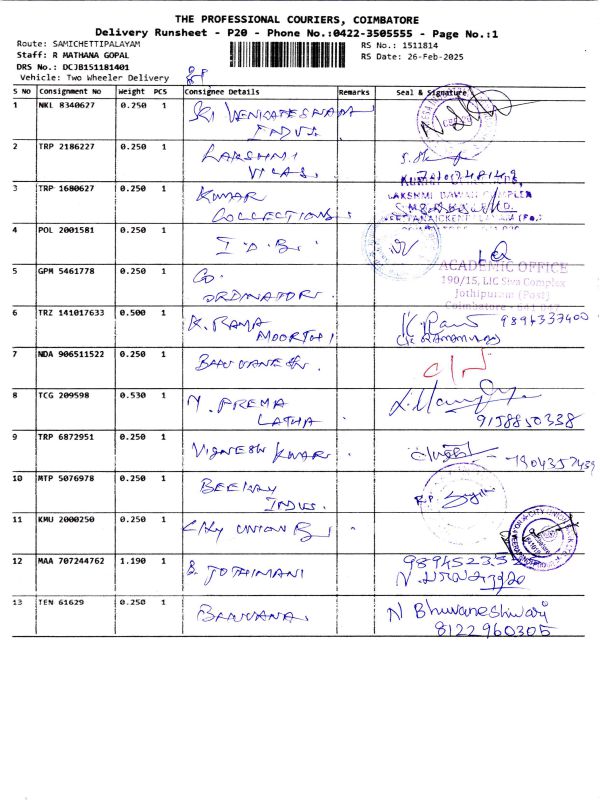 THE PROFESSIONAL COURIERS, COIMBATORE
Delivery Runsheet - P20 - Phone No.:0422-3505555 - Page No.:1
Route: SAMICHETTIPALAYAM
RS No.: 1511814
Staff: R MATHANA GOPAL
RS Date: 26-Feb-2025
DRS No.: DCJB151181401
Vehicle: Two Wheeler Delivery
S NO Consignment No Weight PCS Consignee Details Remarks Seal & Signature
1 NKL 8340627 0.250 1 SRI VENKATESWARA
INDUS.
2 TRP 2186227 0.250 1 LAKSHMI
VILAS.
3 TRP 1680627 0.250 1 KUMAR
COLLECTIONS.
LAKSHMI DAWAR COMPLEX
4 POL 2001581 0.250 1 I.O.B.
5 GPM 5461778 0.250 1 CO.
ORDINATOR.
ACADEMIC OFFICE
190/15, LIC Siva Complex
Jothipuram (Post)
Coimbatore
6 TRZ 141017633 0.500 1 K. RAMA
MOORTHI
9894337400
7 NDA 906511522 0.250 1 BHUVANESH.
8 TCG 209598 0.530 1 M. PREMA
LATHA
9158850338
9 TRP 6872951 0.250 1 VIGNESH KUMAR.
7904357439
10 MTP 5076978 0.250 1 BEEKAY
INDUS.
R.P.
11 KMU 2000250 0.250 1 CITY UNION B
12 MAA 707244762 1.190 1 S. JOTHIMANI
13 TEN 61629 0.250 1 BANUVANA.
N Bhuvaneshwari
8122960305